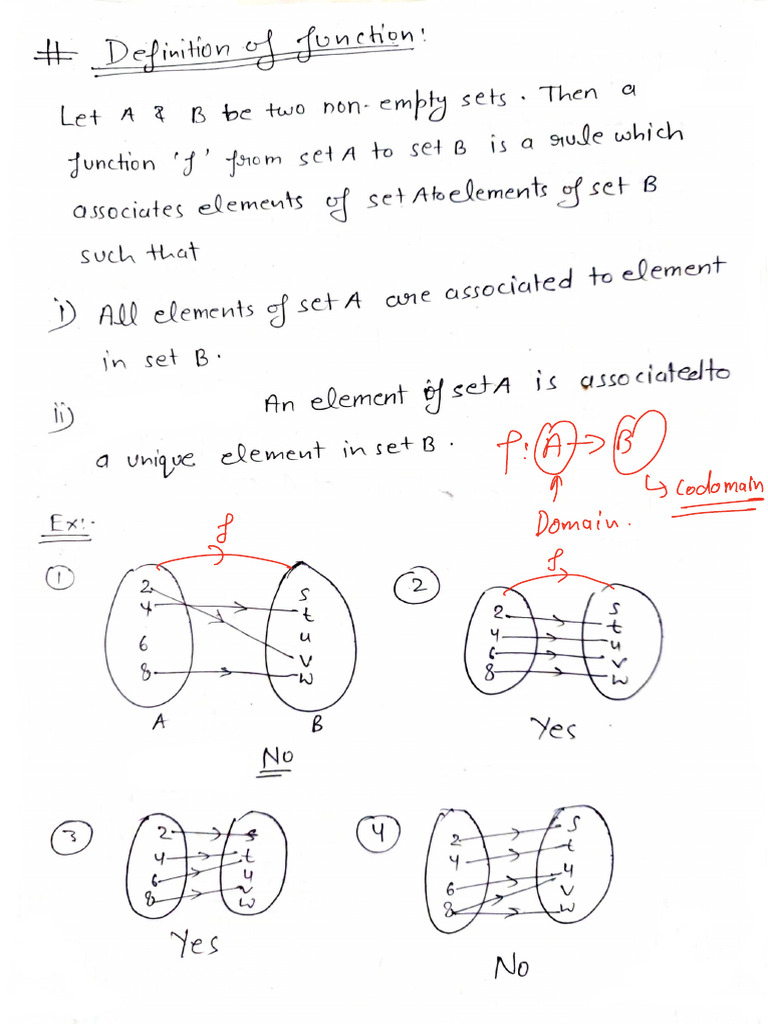 # Definition of function:
Let A & B be two non-empty sets. Then a
function 'f' from set A to set B is a rule which
associates elements of set A to elements of set B
such that
i) All elements of set A are associated to element
in set B.
ii) An element of set A is associated to
a unique element in set B.
f: A → B
↳ Codomain
Domain.
Ex:-
f
①
2
4
6
8
s
t
u
v
w
A B
No
f
②
2
4
6
8
s
t
u
v
w
Yes
③
2
4
6
8
s
t
u
v
w
Yes
④
2
4
6
8
s
t
u
v
w
No